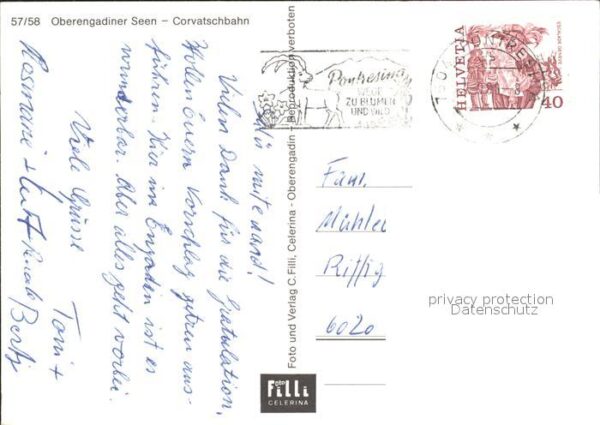 57/58 Oberengadiner Seen – Corvatschbahn
mitenand!
Vielen Dank für die Gratulation,
Wollen euern Vorschlag getreu aus-
führen. Hier im Engadin ist es
wunderbar. Aber alles geht vorbei.
Viele Grüsse
Toni +
Rosmarie +
Foto und Verlag C. Filli, Celerina – Oberengadin – Reproduktion verboten
Foto
Filli
CELERINA
Pontresina
WEGE
ZU BLUMEN
UND WILD
PONTRESINA
HELVETIA
40
Fam.
Mühler
Riffig
6020
privacy protection
Datenschutz